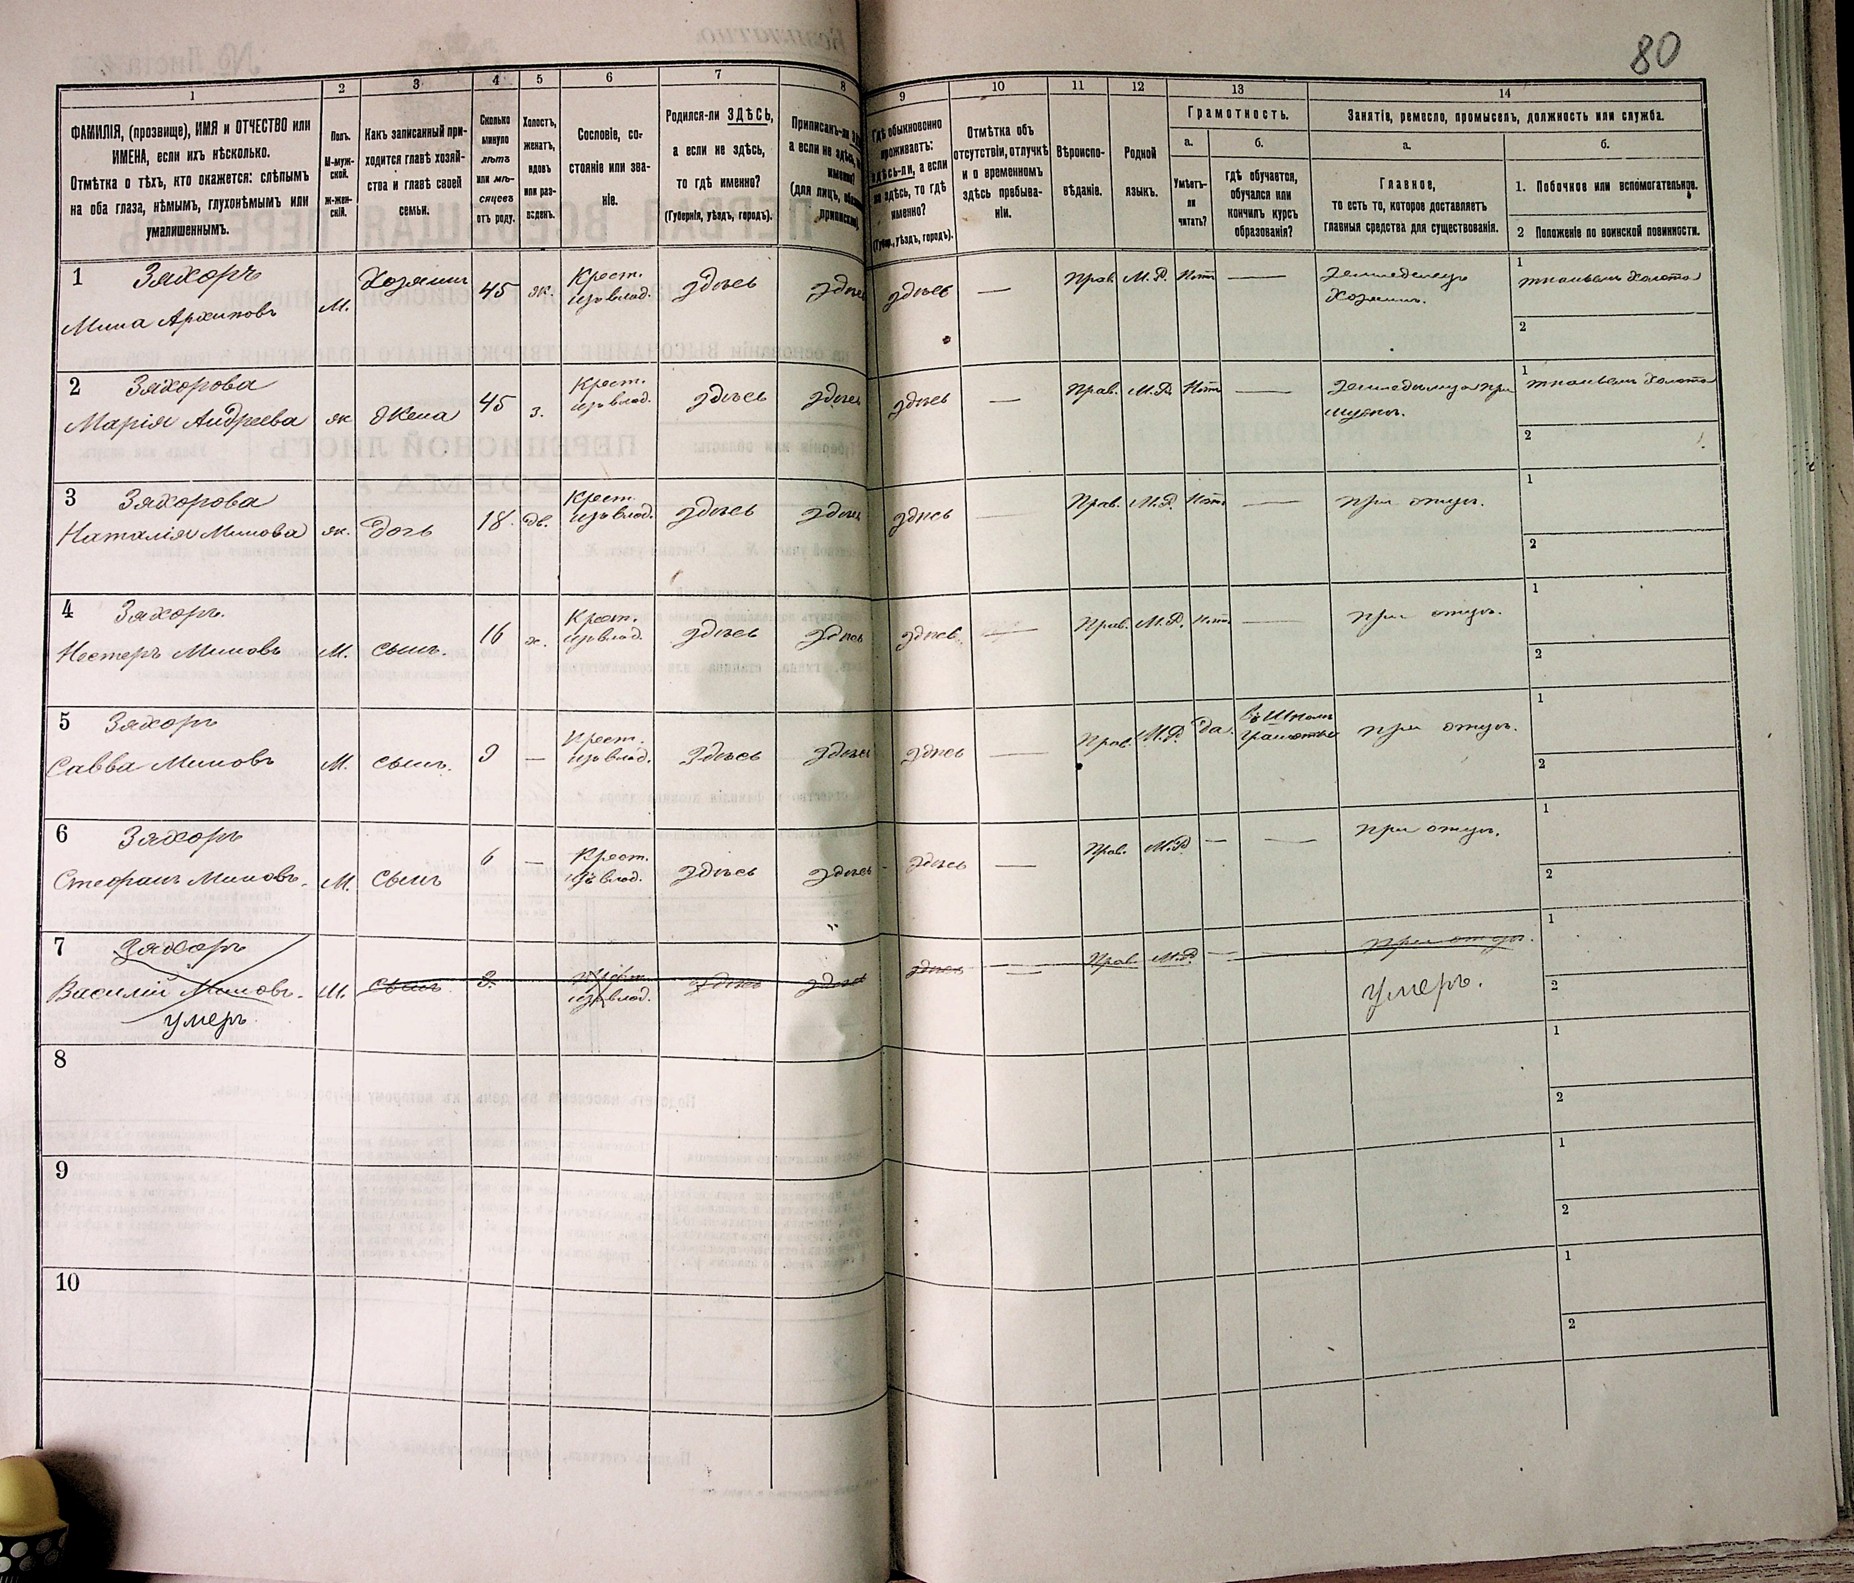 80
1
2
3
4
5
6
7
8
9
10
11
12
13
14
ФАМИЛІЯ, (прозвище), ИМЯ и ОТЧЕСТВО или
ИМЕНА, если ихъ нѣсколько.
Отмѣтка о тѣхъ, кто окажется: слѣпымъ
на оба глаза, нѣмымъ, глухонѣмымъ или
умалишеннымъ.
Полъ.
М-муж-
ской.
Ж-жен-
скій.
Какъ записанный при-
ходится главѣ хозяй-
ства и главѣ своей
семьи.
Сколько
минуло
лѣтъ
или мѣ-
сяцевъ
отъ роду.
Холостъ,
женатъ,
вдовъ
или раз-
веденъ.
Сословіе, со-
стояніе или зва-
ніе.
Родился-ли ЗДѢСЬ,
а если не здѣсь,
то гдѣ именно?
(Губернія, уѣздъ, городъ).
Приписанъ-ли
а если не здѣсь,
именно?
(для лицъ,
Гдѣ обыкновенно
проживаетъ:
здѣсь-ли, а если
не здѣсь, то гдѣ
именно?
(Губер., уѣздъ, городъ).
Отмѣтка объ
отсутствіи, отлучкѣ
и о временномъ
здѣсь пребыва-
ніи.
Вѣроиспо-
вѣданіе.
Родной
языкъ.
Грамотность.
а.
б.
Умѣетъ-
ли
читать?
гдѣ обучается,
обучался или
кончилъ курсъ
образованія?
Занятіе, ремесло, промыселъ, должность или служба.
а.
б.
Главное,
то есть то, которое доставляетъ
главныя средства для существованія.
1. Побочное или вспомогательное.
2 Положеніе по воинской повинности.
1 Зяхоръ
Мина Архиповъ М. Хозяинъ 45 ж. Крест.
изъ влад. здѣсь здѣсь здѣсь — Прав. М.Р. Нѣтъ — Земледѣлецъ
Хозяинъ.
1
2
2 Зяхорова
Марія Андреева ж Жена 45 з. Крест.
изъ влад. здѣсь здѣсь здѣсь — Прав. М.Р. Нѣтъ —
1
2
3 Зяхорова
Наталія Минова ж. дочь 18. дв. Крест.
изъ влад. здѣсь здѣсь здѣсь — Прав. М.Р. Нѣтъ — при отцѣ.
1
2
4 Зяхоръ.
Нестеръ Миновъ М. сынъ. 16 х. Крест.
изъ влад. здѣсь здѣсь здѣсь — Прав. М.Р. Нѣтъ — при отцѣ.
1
2
5 Зяхоръ
Савва Миновъ М. сынъ. 9 — Крест.
изъ влад. здѣсь здѣсь здѣсь — Прав. М.Р. Да. въ Школѣ
грамоты при отцѣ.
1
2
6 Зяхоръ
Стефанъ Миновъ. М. сынъ 6 — Крест.
изъ влад. здѣсь здѣсь здѣсь — Прав. М.Р. — — при отцѣ.
1
2
7 Зяхоръ
Василій Миновъ. М. сынъ 3. Крест.
изъ влад. здѣсь здѣсь здѣсь — Прав. М.Р. — — при отцѣ.
умеръ умеръ.
1
2
8
1
2
9
1
2
10
1
2